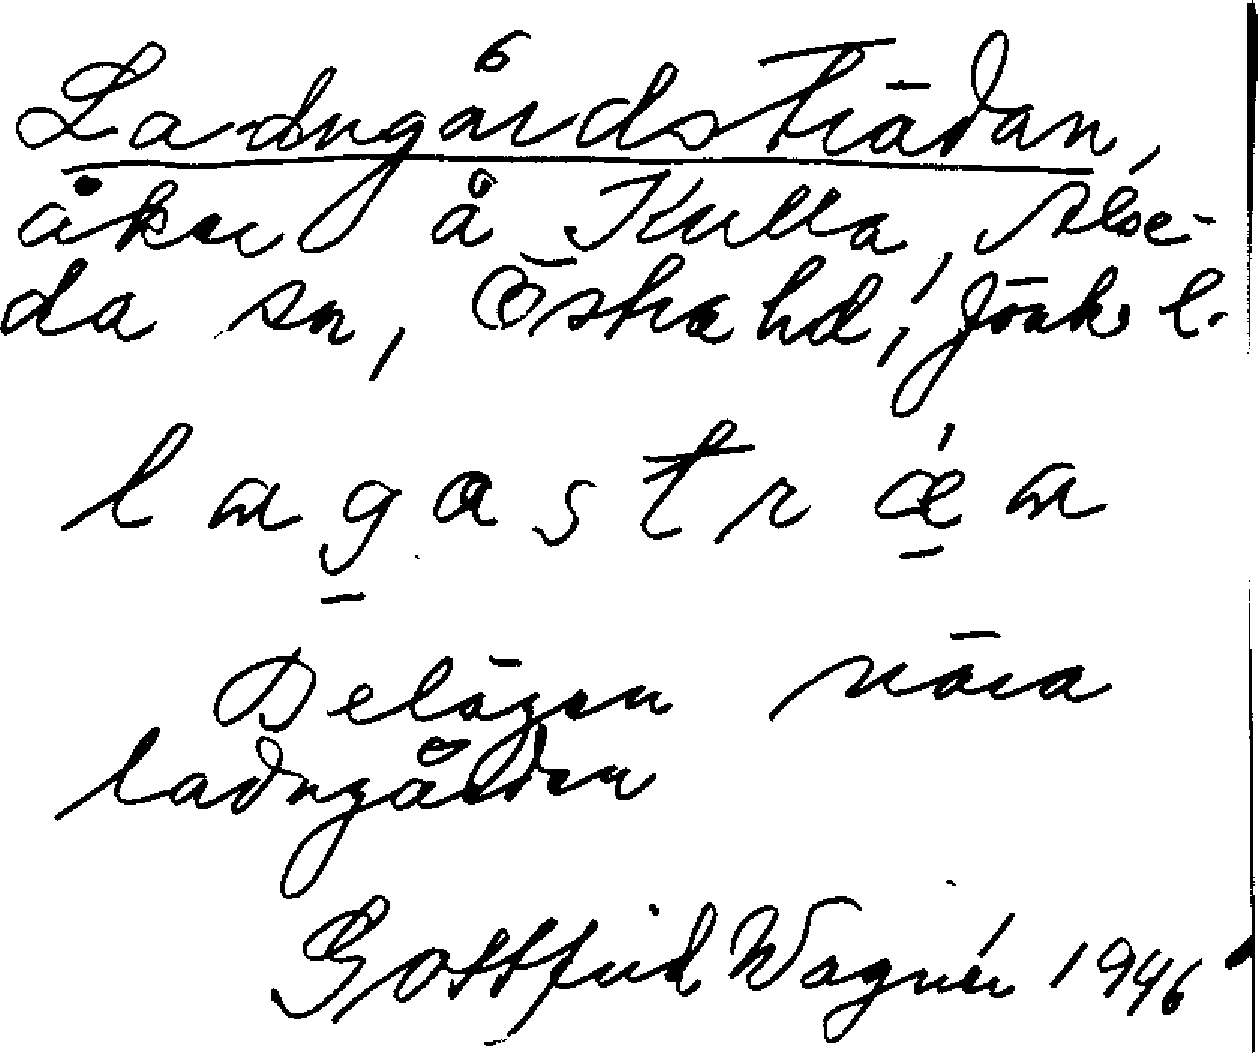 Ladugårdsträdan,
åker å Kulla, Alse-
da sn, Östra hd, Jönk. l.
lagastræ̀a
Belägen nära
ladugården
Gottfrid Wagnér 1946